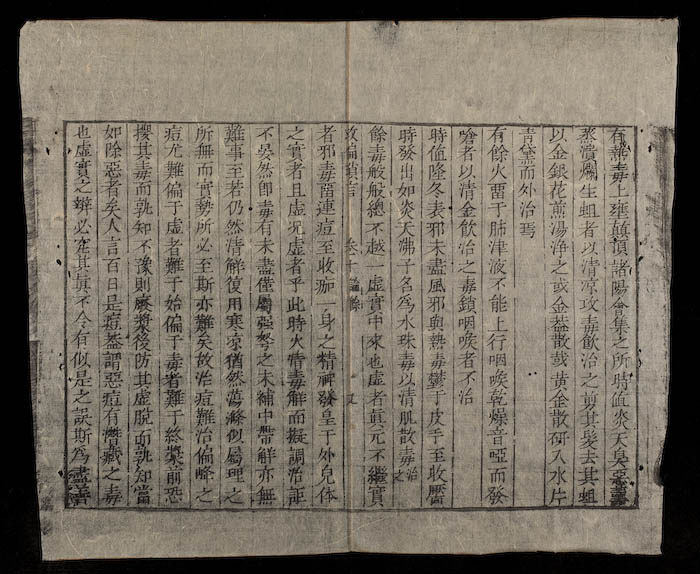 有熱毒上壅巔頂諸陽會集之所時值炎天臭惡
蒸潰爛生蛆者以清凉攻毒飲治之剪其髮去其蛆
以金銀花煎湯净之或金蓋散或黄金散研入水片
青黛而外治焉
有餘火畱于肺津液不能上行咽喉乾燥音啞而發
嗆者以清金飲治之毒鎖咽喉者不治
時值隆冬表邪未盡風邪與熱毒鬱于皮毛至收靨
時發出如炎天沸子名爲水珠毒以清肌散毒治之
餘毒般般總不越一虛實中來也虛者真元不繼實
救偏瑣言 卷十 餘
者邪毒畱連痘至收痂一身之精神發皇于外兒体
之實者且虛况虛者乎此時火清毒解而擬調治詎
不晏然即毒有未盡僅屬强弩之末補中帶解亦無
難事至若仍然清解復用寒凉猶然蕩滌似屬理之
所無而實勢所必至斯亦難矣故治痘難治偏峰之
痘尤難偏于虛者難于始偏于毒者難于終漿前恐
攖其毒而孰知不豫則廢漿後防其虛脱而孰知當
如除惡者矣人言百日是痘蓋謂惡痘有潛藏之毒
也虛實之辨必定其真不令有似是之誤斯爲盡善